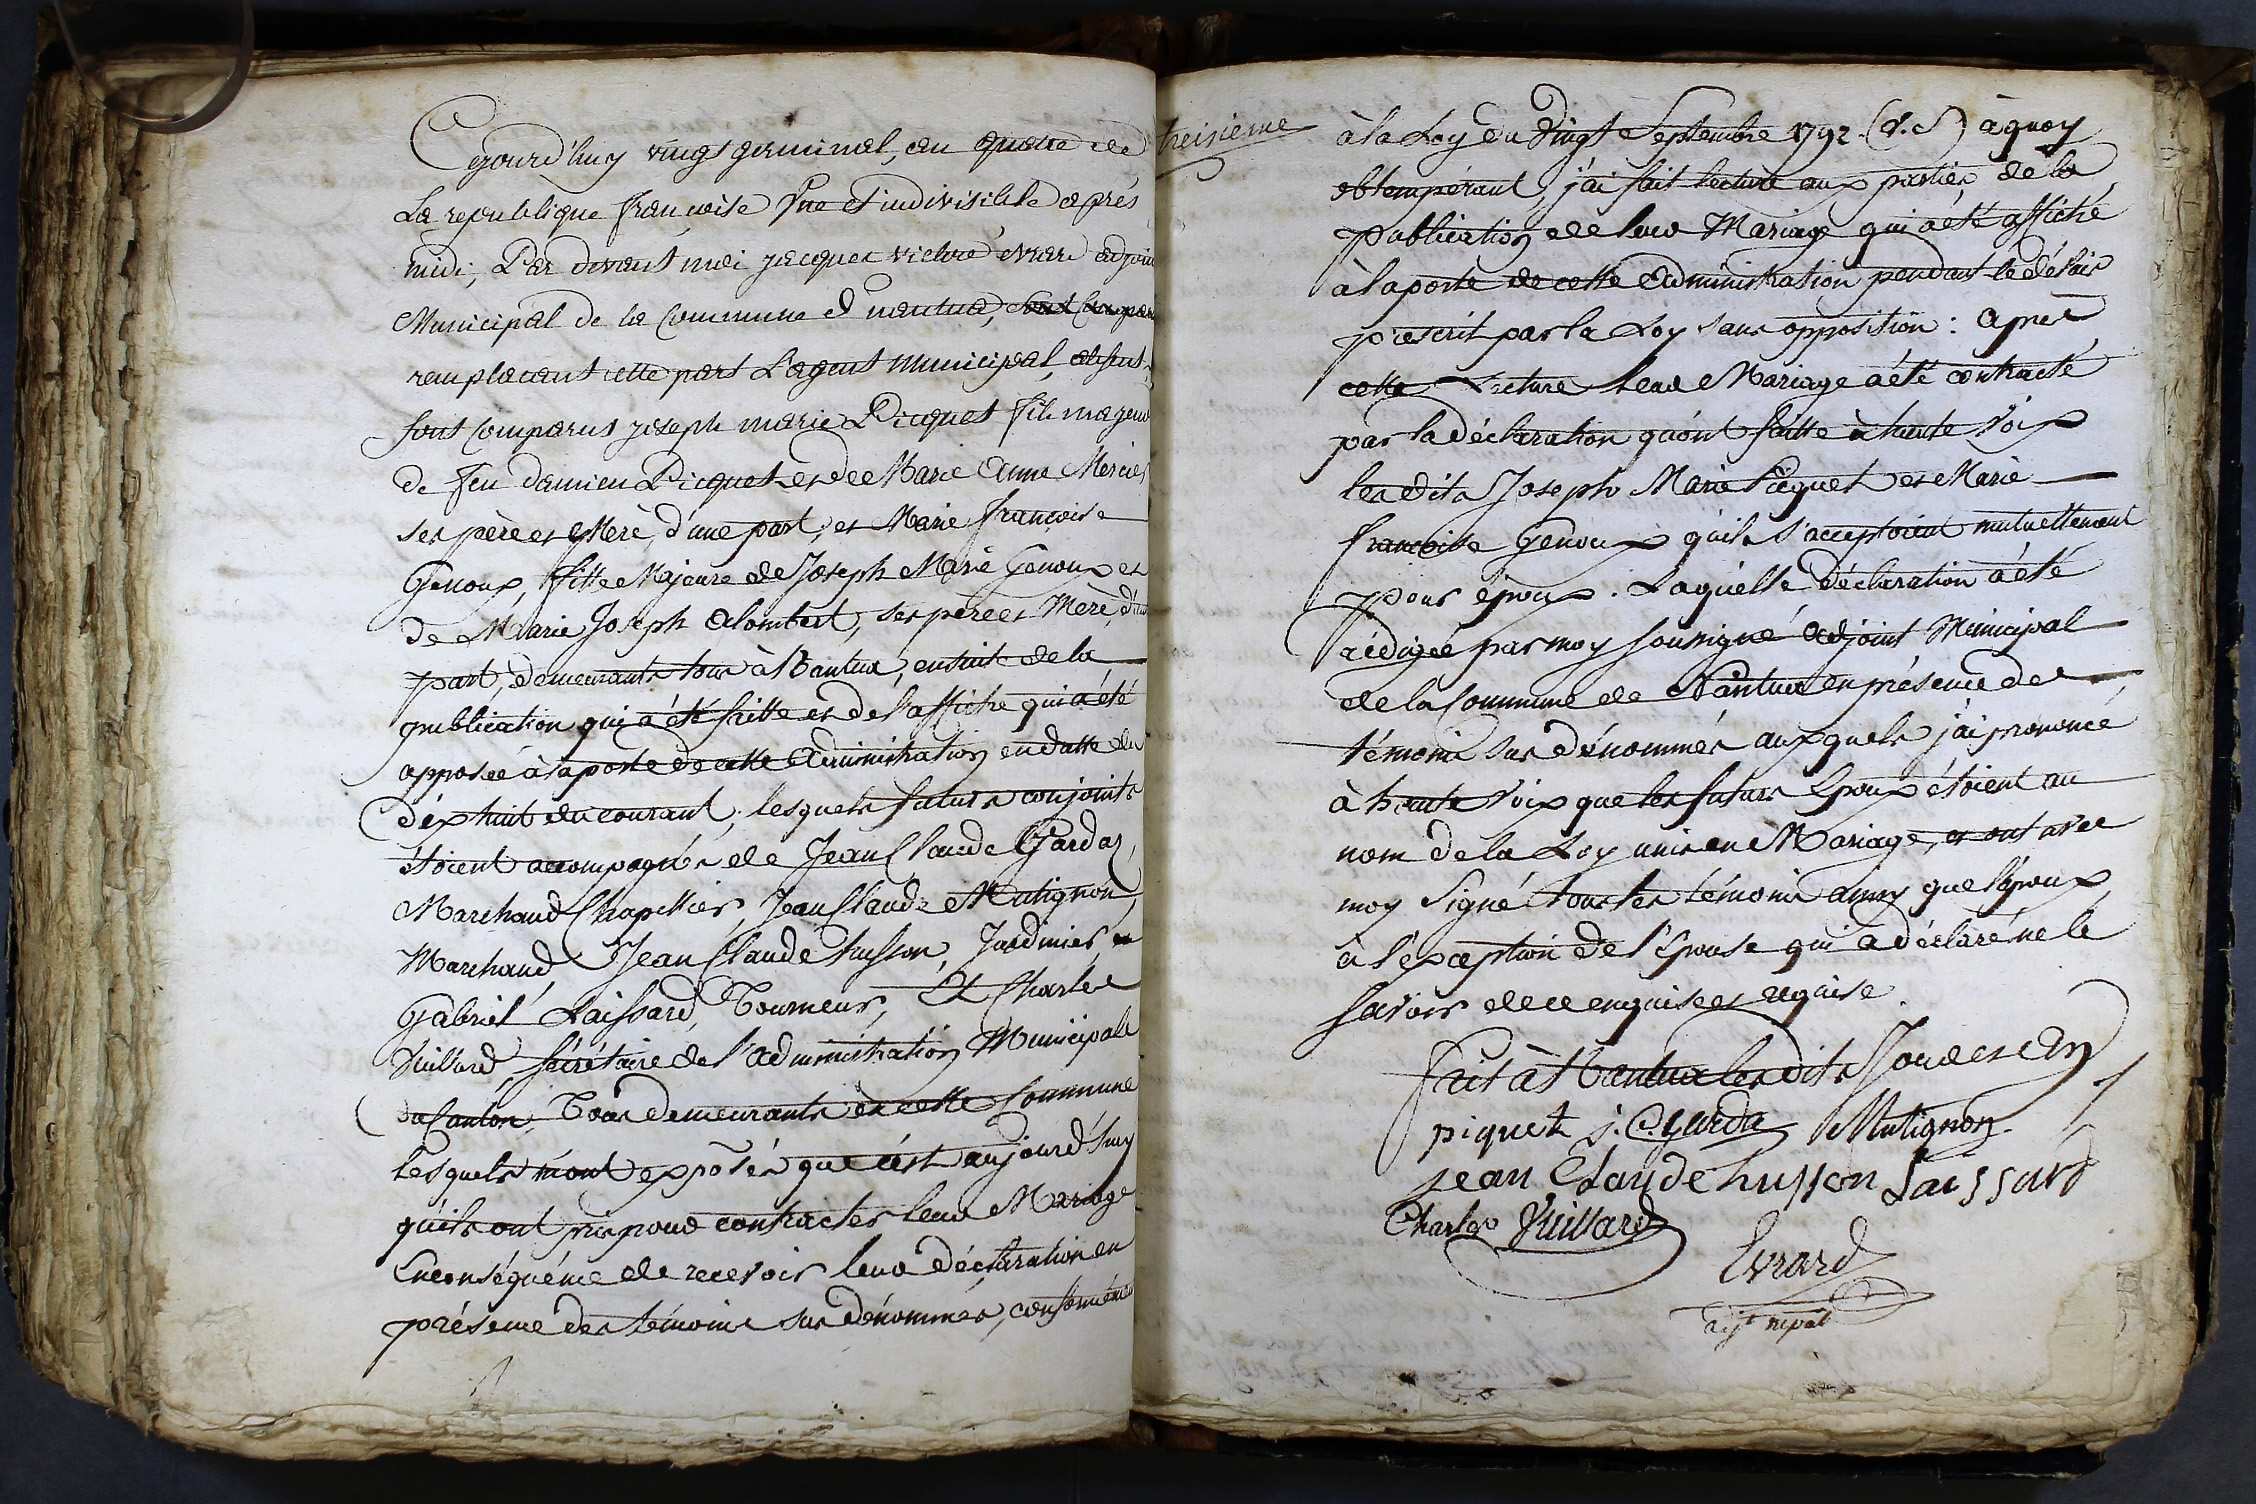 Cejourd'huy vingt germinal, an quatre de
La republique françoise Une et indivisible après
midi, Par devant moi jacques victoire évrard adjoin
Municipal de la Commune d nantua, sont Compar
remplacant cette part L'agent municipal, absent,
sont Comparus joseph marie Picquet fils majeur
de feu damien Picquet et de Marie Anne Mercier
ses père et Mere, d'une part, et Marie françoise
Genoux, fille Majeure de Joseph Marie Genoux et
de Marie Joseph Alombert, ses père et Mere, d'au
part, demeurants tous à Nantua, ensuite de la
publication qui a été faitte et de l'affiche qui a été
apposée à la porte de cette Administration en datte du
dix huit du courant, lesquels futurs conjoints
étoient accompagnés de Jean Claude Gardaz,
Marchand Chapellier, Jean Claude Mutignon,
Marchand, Jean Claude husson, Jardinier, et
Gabriel Laissard, Tourneur, Et Charles
Vuillard, secrétaire de l'administration Municipale
du Canton, Tous demeurants en cette Commune
lesquels m'ont exposés que c'est aujourd'huy
qu'ils ont pris pour contracter leur Mariage
En conséquence de recevoir leur déclaration en
présence des témoins sus dénommés, conformém
treizieme
à la Loy du Vingt Septembre 1792. (V.S) à quoy
obtempérant, j'ai fait lecture aux parties de la
publication de leur Mariage qui a été affiché
à la porte de cette Administration pendant le délais
prescrit par la Loy sans opposition : après
cette Lecture leur Mariage a été contracté
par la déclaration qu'ont faitte à haute voix
les dits Joseph Marie Picquet et Marie
françoise Genoux qu'ils s'acceptoient mutuellement
pour époux. Laquelle déclaration a été
rédigée par moy soussigné adjoint Municipal
de la Commune de Nantua en présence des
témoins sus dénommés auxquels j'ai prononcé
à haute voix que les futurs Epoux étoient au
nom de la Loy unis en Mariage, et ont avec
moy Signé tous les témoins ainsy que l'époux
à l'exception de l'Epouse qui a déclaré ne le
savoir de ce enquise et requise.
fait à Nantua les dits Jour et an
piquet j. C. garda Mutignon
jean Claude husson Laissard
Charles Vuillard
Evrard
adjt mpal